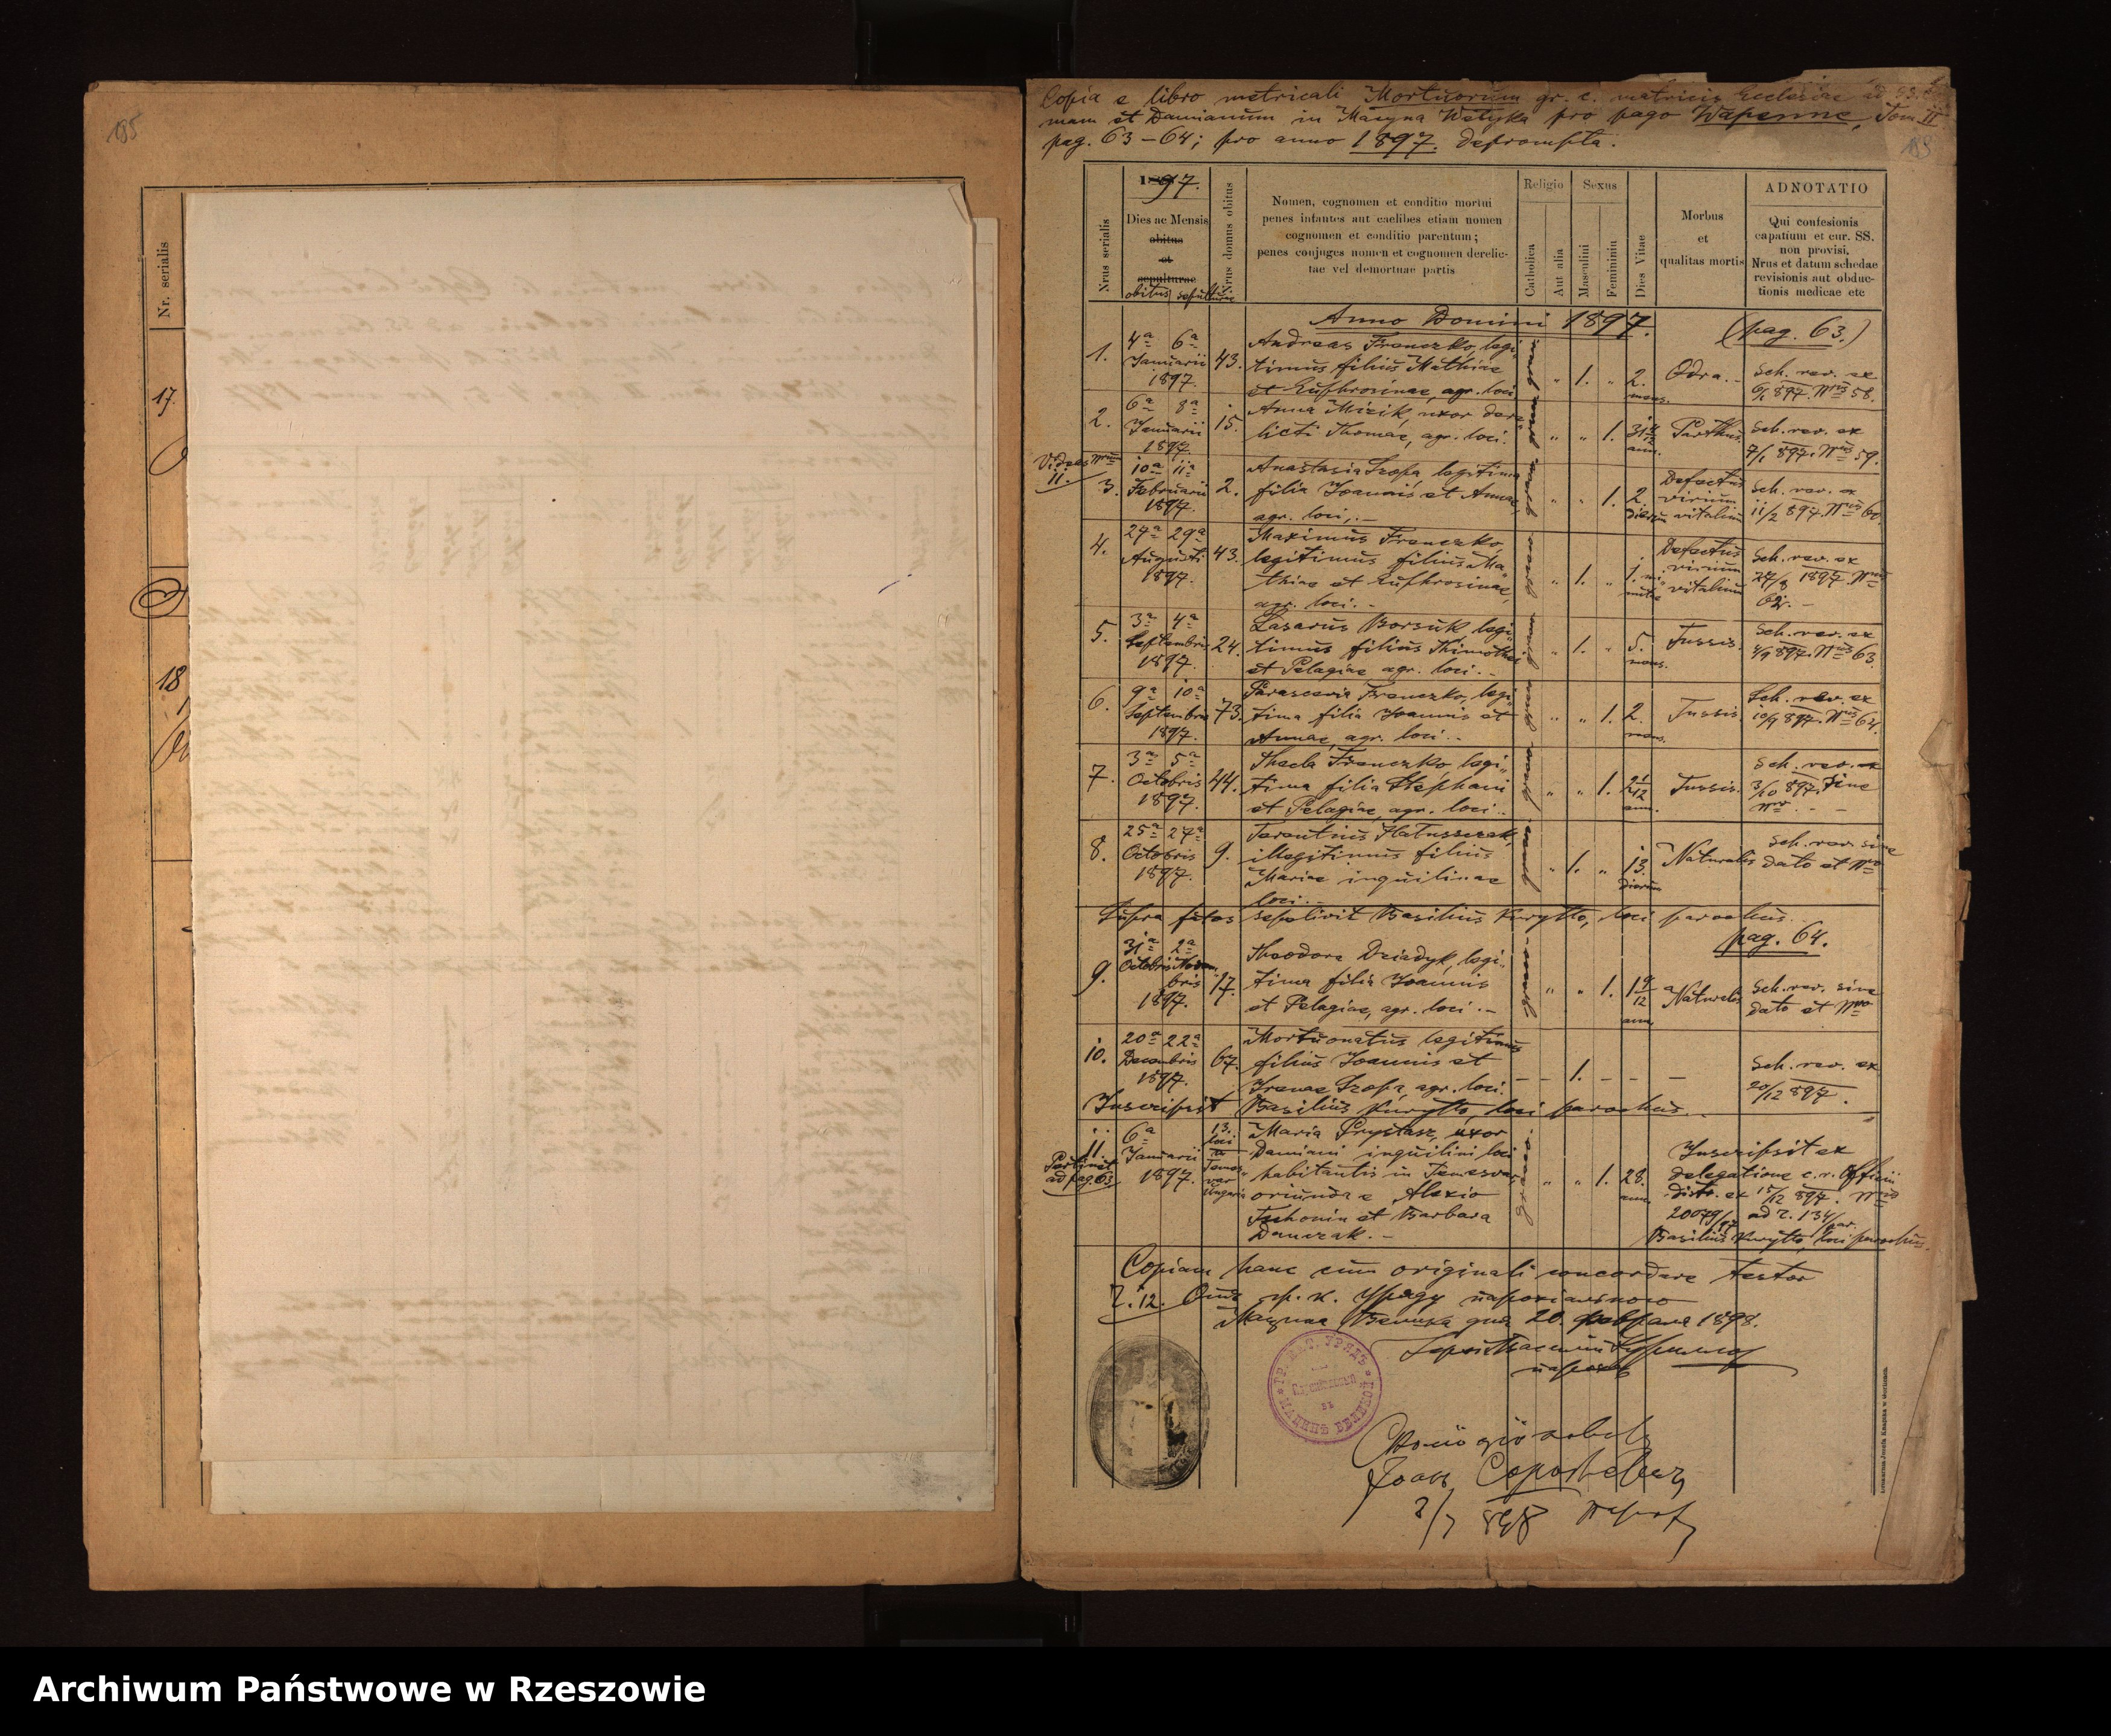 185
Nr. serialis
17.
18
Copia e libro metricali Mortuorum gr. c. matricis Ecclesiae ad SS.
mam et Damianum in Macyna Wełyka pro pago Wapenne, Tom II
pag. 63–64; pro anno 1897. deprompta.
185
Nrus serialis
1897.
Dies ac Mensis
obitus
et
sepulturae
obitus sepulturae
Nrus domus obitus
Nomen, cognomen et conditio mortui
penes infantes aut caelibes etiam nomen
cognomen et conditio parentum;
penes conjuges nomen et cognomen derelic-
tae vel demortuae partis
Religio
Catholica
Aut alia
Sexus
Masculini
Femininin
Dies Vitae
Morbus
et
qualitas mortis
ADNOTATIO
Qui confesionis
capatium et cur. SS.
non provisi.
Nrus et datum schedae
revisionis aut obduc-
tionis medicae etc
Anno Domini 1897. (pag. 63.)
1. 4a 6a Januarii 1897. 43.
Andreas Frenczko, legi-
timus filius Mathiae
et Eufhrosinae, agr. loci
" 1. " 2. mens. Odra. -
Sch. rev. ex
6/1 897. Nrus 58.
2. 6a 8a Januarii 1897. 15.
Anna Mizik, uxor dere-
licti Thomae, agr. loci.
" " 1. ann. Parthus.
Sch. rev. ex
7/1 897. Nrus 59.
Videas Nrum
11.
3. 10a 11a Februarii 1897. 2.
Anastasia Szopa, legitima
filia Joannis et Annae,
agr. loci. -
" " 1. 2. dierum Defectus virium vitalium
Sch. rev. ex
11/2 897. Nrus 60.
4. 27a 29a Augusti 1897. 43.
Maximus Frenczko,
legitimus filius Ma-
thiae et Eufhrosinae,
agr. loci. -
" 1. " 1. mi- nuta Defectus virium vitalium
Sch. rev. ex
27/8 1897. Nrus
62. -
5. 3a 4a Septembris 1897. 24.
Lasarus Borsuk, legi-
timus filius Thimothei
et Pelagiae agr. loci. -
" 1. " 5. mens. Tussis.
Sch. rev. ex
4/9 897. Nrus 63.
6. 9a 10a Septembris 1897. 73.
Parascevia Frenczko, legi-
tima filia Joannis et
Annae, agr. loci. -
" " 1. 2. mens. Tussis.
Sch. rev. ex
10/9 897. Nrus 64.
7. 3a 5a Octobris 1897. 44.
Thecla Frenczko legi-
tima filia Stephani
et Pelagiae, agr. loci. -
" " 1. 2 1/12 ann. Tussis.
Sch. rev. ex
3/10 897. sine
Nro. -
8. 25a 27a Octobris 1897. 9.
illegitimus filius
Mariae inquilinae
loci. -
" 1. " 13. dierum Naturalis
Sch. rev. sine
dato et Nro
Supra fatos sepelivit Basilius Kuryłło, loci parochus.
pag. 64.
9. 31a 2a Octobris Novembris 1897. 17.
Theodora Dziadyk, legi-
tima filia Joannis
et Pelagiae, agr. loci. -
" " 1. 1 9/12 ann. Naturalis
Sch. rev. sine
dato et Nro
10. 20a 22a Decembris 1897. 67.
Mortuonatus legitimus
filius Joannis et
Irenae Szopa, agr. loci.
- - 1. - - -
Sch. rev. ex
20/12 897.
Inscripsit Basilius Kuryłło, loci parochus.
11. 6a Januarii 1897.
Pertinet
ad pag. 63.
13. loci a Temes- var Ungaria
Maria Prystasz, uxor
Damiani inquilini loci
habitantis in Temesvar,
oriunda e Alexio
Tychonin et Barbara
Danczak. -
" " 1. 28. ann.
Inscripsit ex
delegatione c. r. Officii
distr. ex 15/12 897. Nro
20079/97 ad Z. 134/par.
Basilius Kuryłło, loci parochus.
Copiam hanc cum originali concordare testor
Z. 12. Отъ гр. к. Уряду парохіяльного
Мацина Велика дня 20. 1898.
ГР. КАТ. УРЯДЪ
ВЪ
МАЦИНѢ ВЕЛИКОЙ
898
Archiwum Państwowe w Rzeszowie